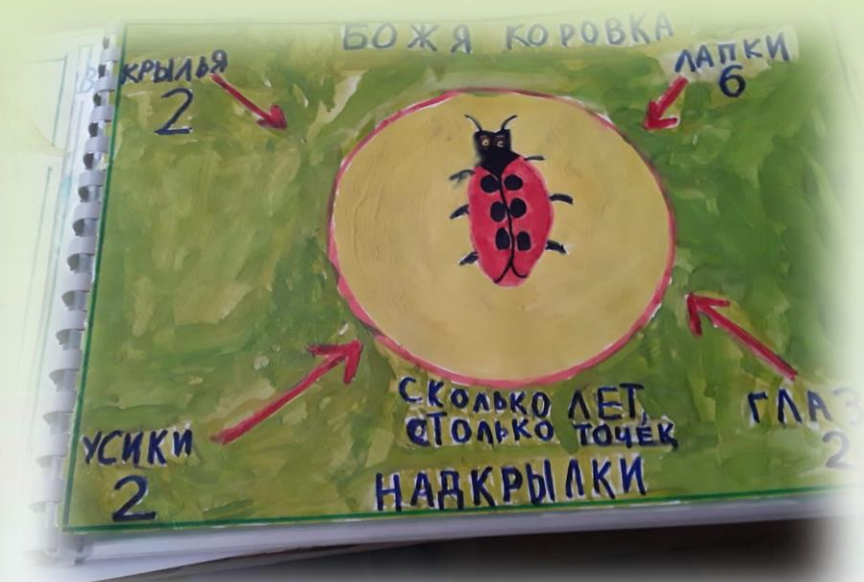 БОЖЯ КОРОВКА
КРЫЛЬЯ
2
ЛАПКИ
6
УСИКИ
2
СКОЛЬКО ЛЕТ,
СТОЛЬКО ТОЧЕК
НАДКРЫЛКИ
ГЛАЗ
2